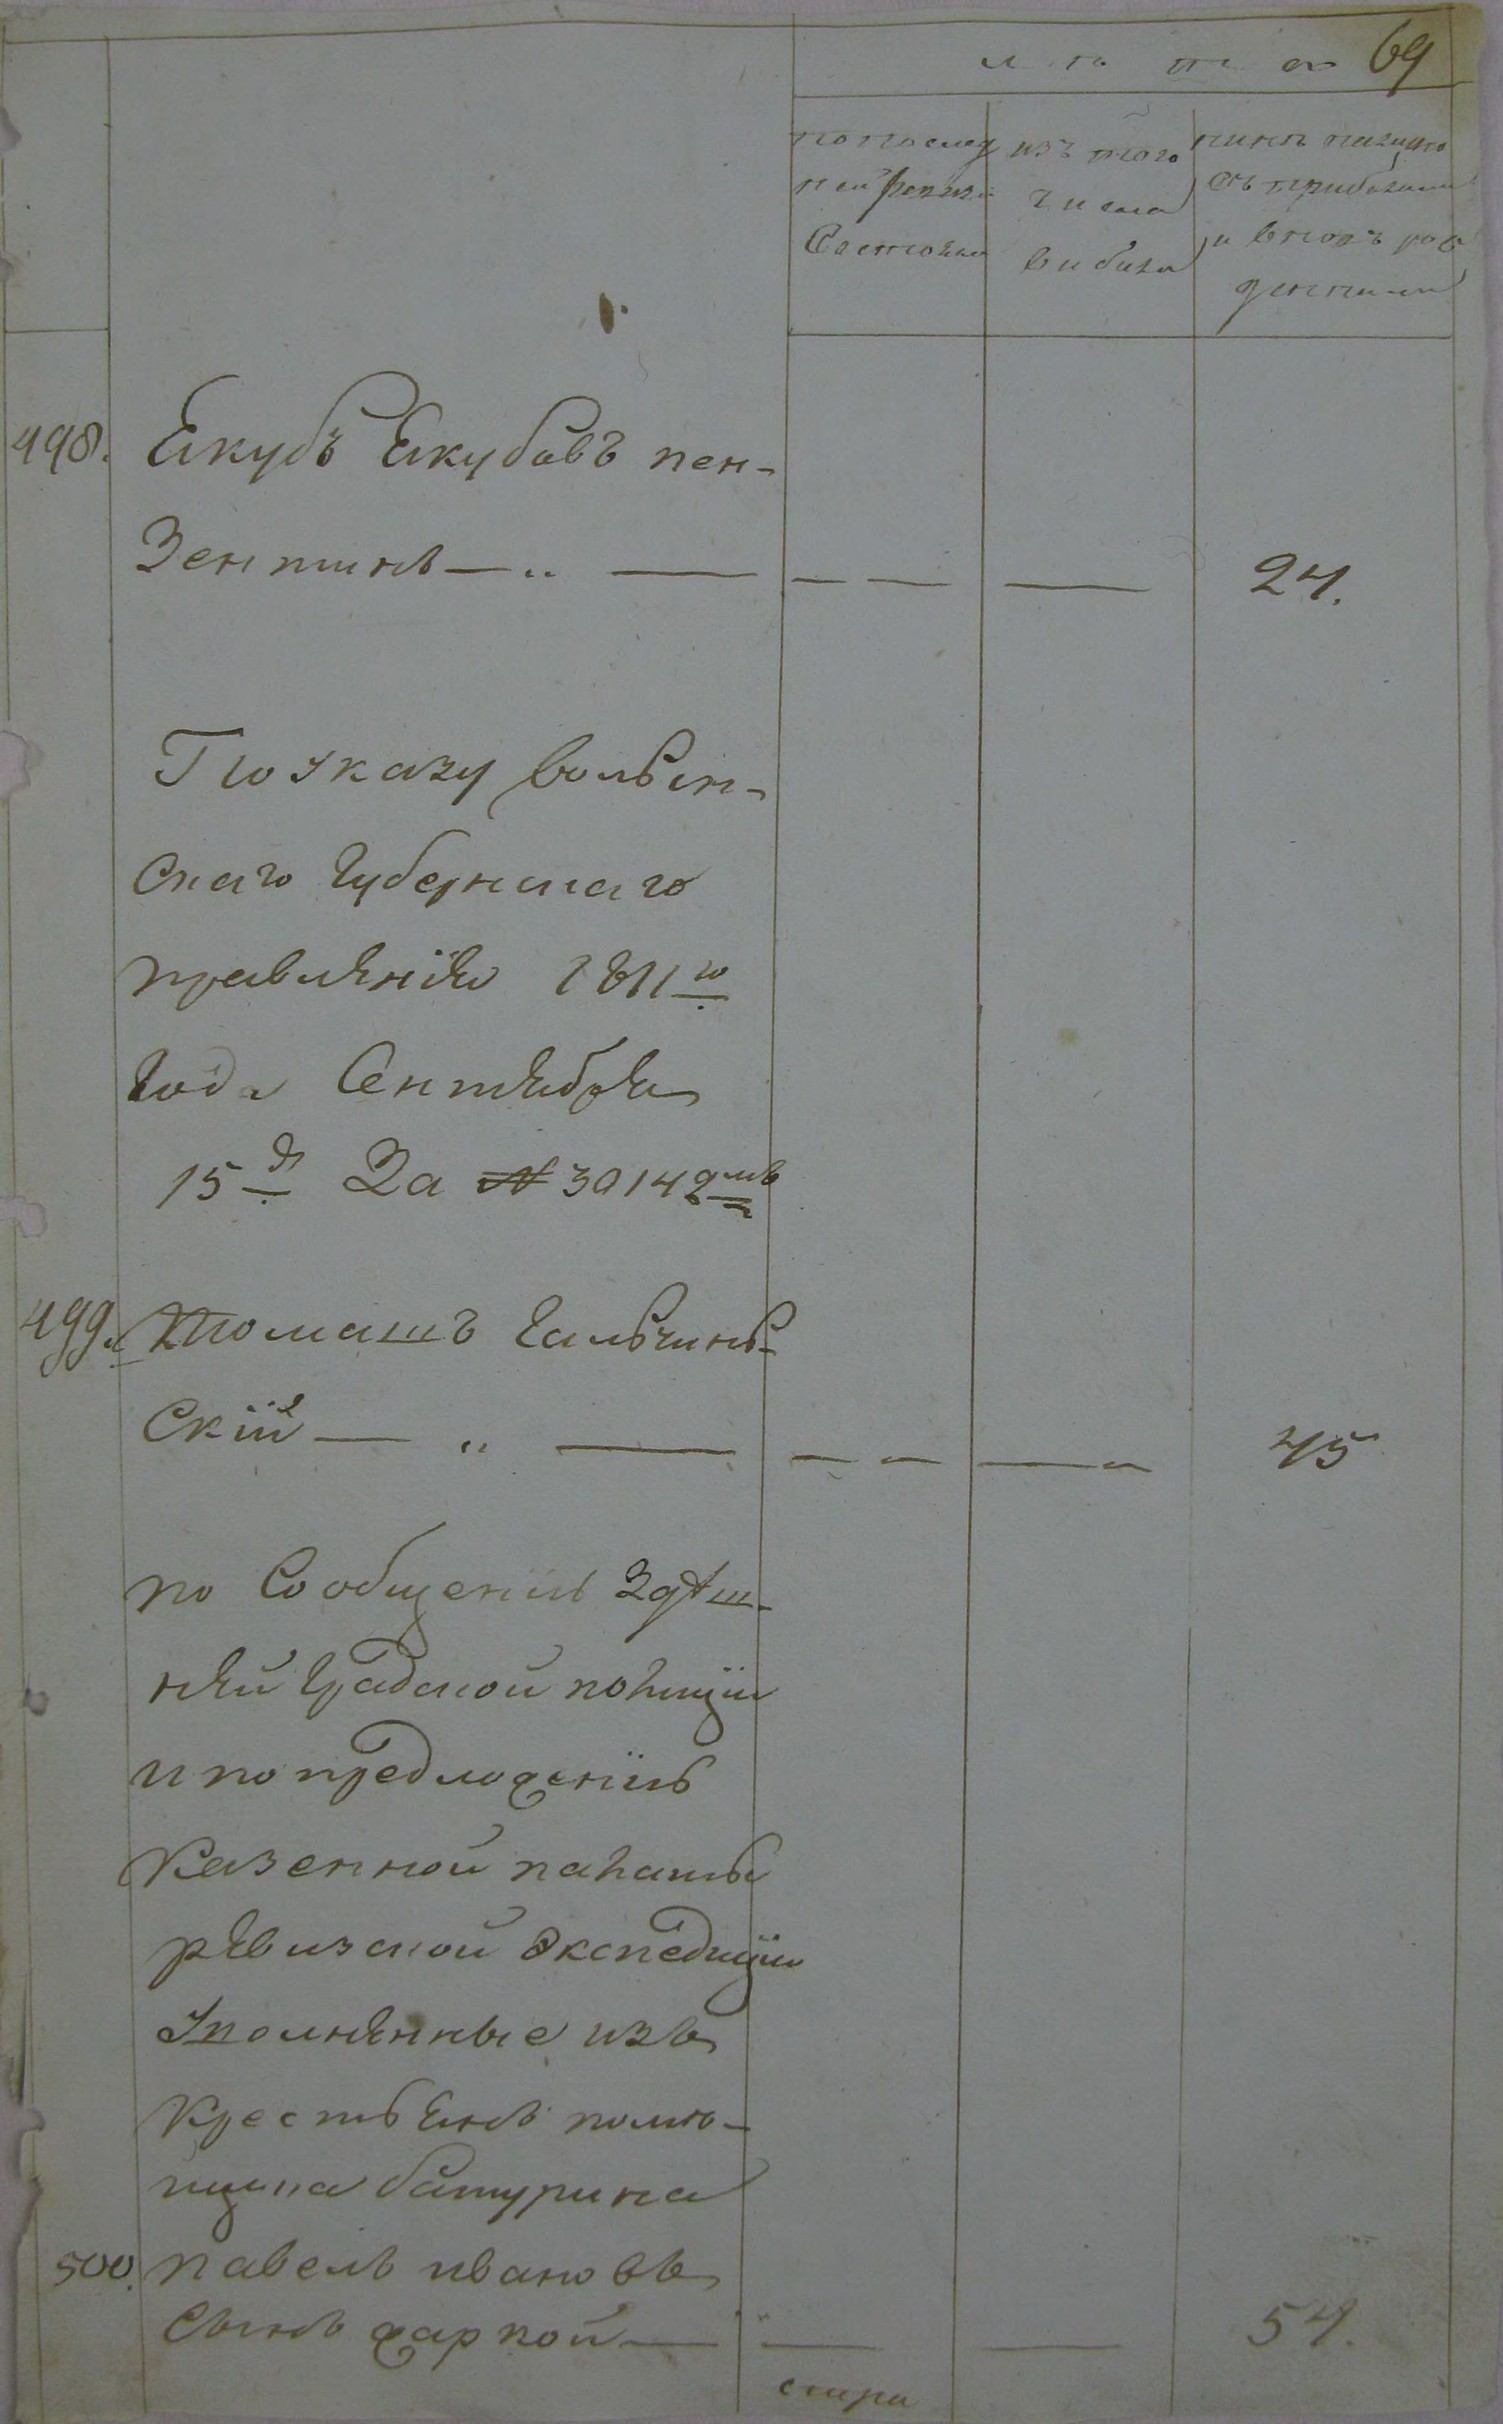 лѣта 69
по послед
ней ревизіи
Состояло
изъ того
числа
выбыло
нынѣ налицо
съ прибылыми
и вновь рож
денными
498. Якубъ Якубовъ пен-
зентинъ — „ — — — — 24.
По указу волын-
скаго Губернскаго
правлѣнія 1811го
года Сентября
15д За № 30142мъ
499. Томашъ Гальчинь-
Скій — „ — — — — 45
по Сообщенію здѣш-
нѣй Градской полиціи
и по предложенію
Казенной палаты
рѣвизской Экспедиціи
уполнѣнные изъ
Крестьянъ помѣ-
щика батурина
500. павелъ ивановъ
Сынъ жаркой — „ — — 54.